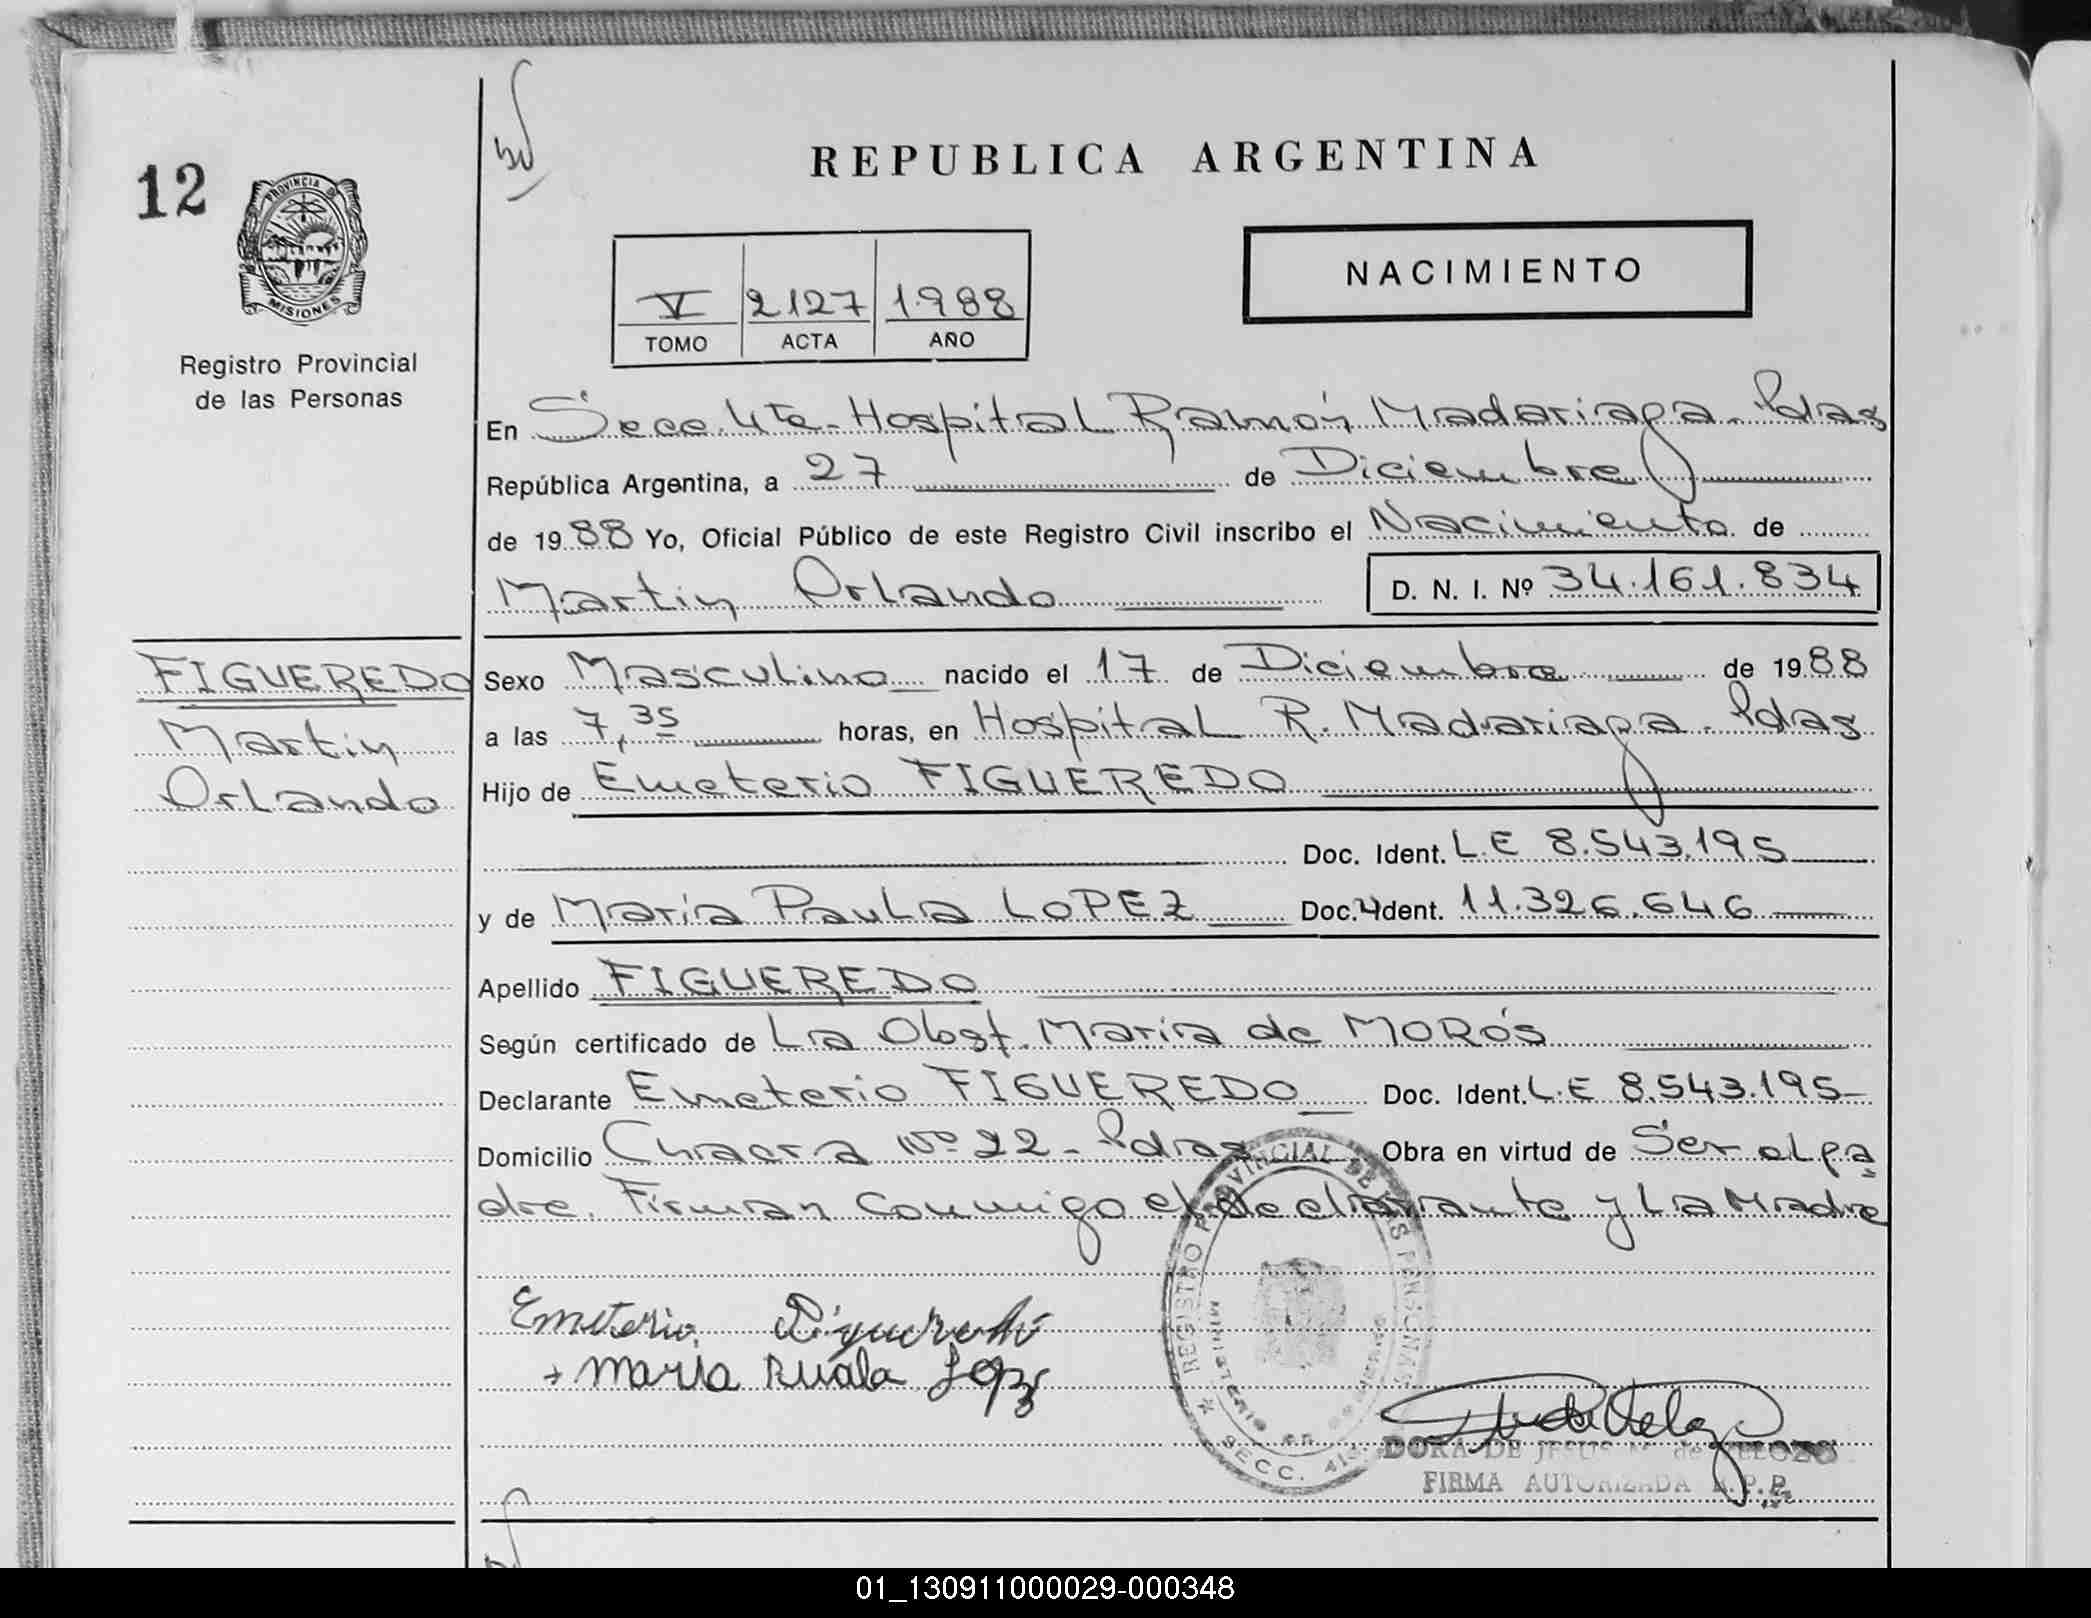 12
PROVINCIA DE
MISIONES
Registro Provincial
de las Personas
REPUBLICA ARGENTINA
NACIMIENTO
V 2127 1988
TOMO ACTA AÑO
En Secc. 4ta - Hospital Ramón Madariaga - Pdas
República Argentina, a 27 de Diciembre
de 1988 Yo, Oficial Público de este Registro Civil inscribo el Nacimiento de
Martin Orlando D. N. I. Nº 34.161.834
FIGUEREDO
Martin
Orlando
Sexo Masculino nacido el 17 de Diciembre de 1988
a las 7,35 horas, en Hospital R. Madariaga - Pdas
Hijo de Emeterio FIGUEREDO
Doc. Ident. L.E 8.543.195
y de María Paula LOPEZ Doc. Ident. 11.326.646
Apellido FIGUEREDO
Según certificado de La Obst. María de MORÓS
Declarante Emeterio FIGUEREDO Doc. Ident. L.E 8.543.195
Domicilio Chacra Nº 22 - Pdas Obra en virtud de Ser el pa
dre. Firman Conmigo el declarante y La Madre
REGISTRO PROVINCIAL DE LAS PERSONAS
MINISTERIO DE GOBIERNO
SECC. 4ta
Emeterio Figueredo
+ Maria Puala Lopez
DORA DE JESUS M. de VELOZO
FIRMA AUTORIZADA R.P.P.
01_130911000029-000348